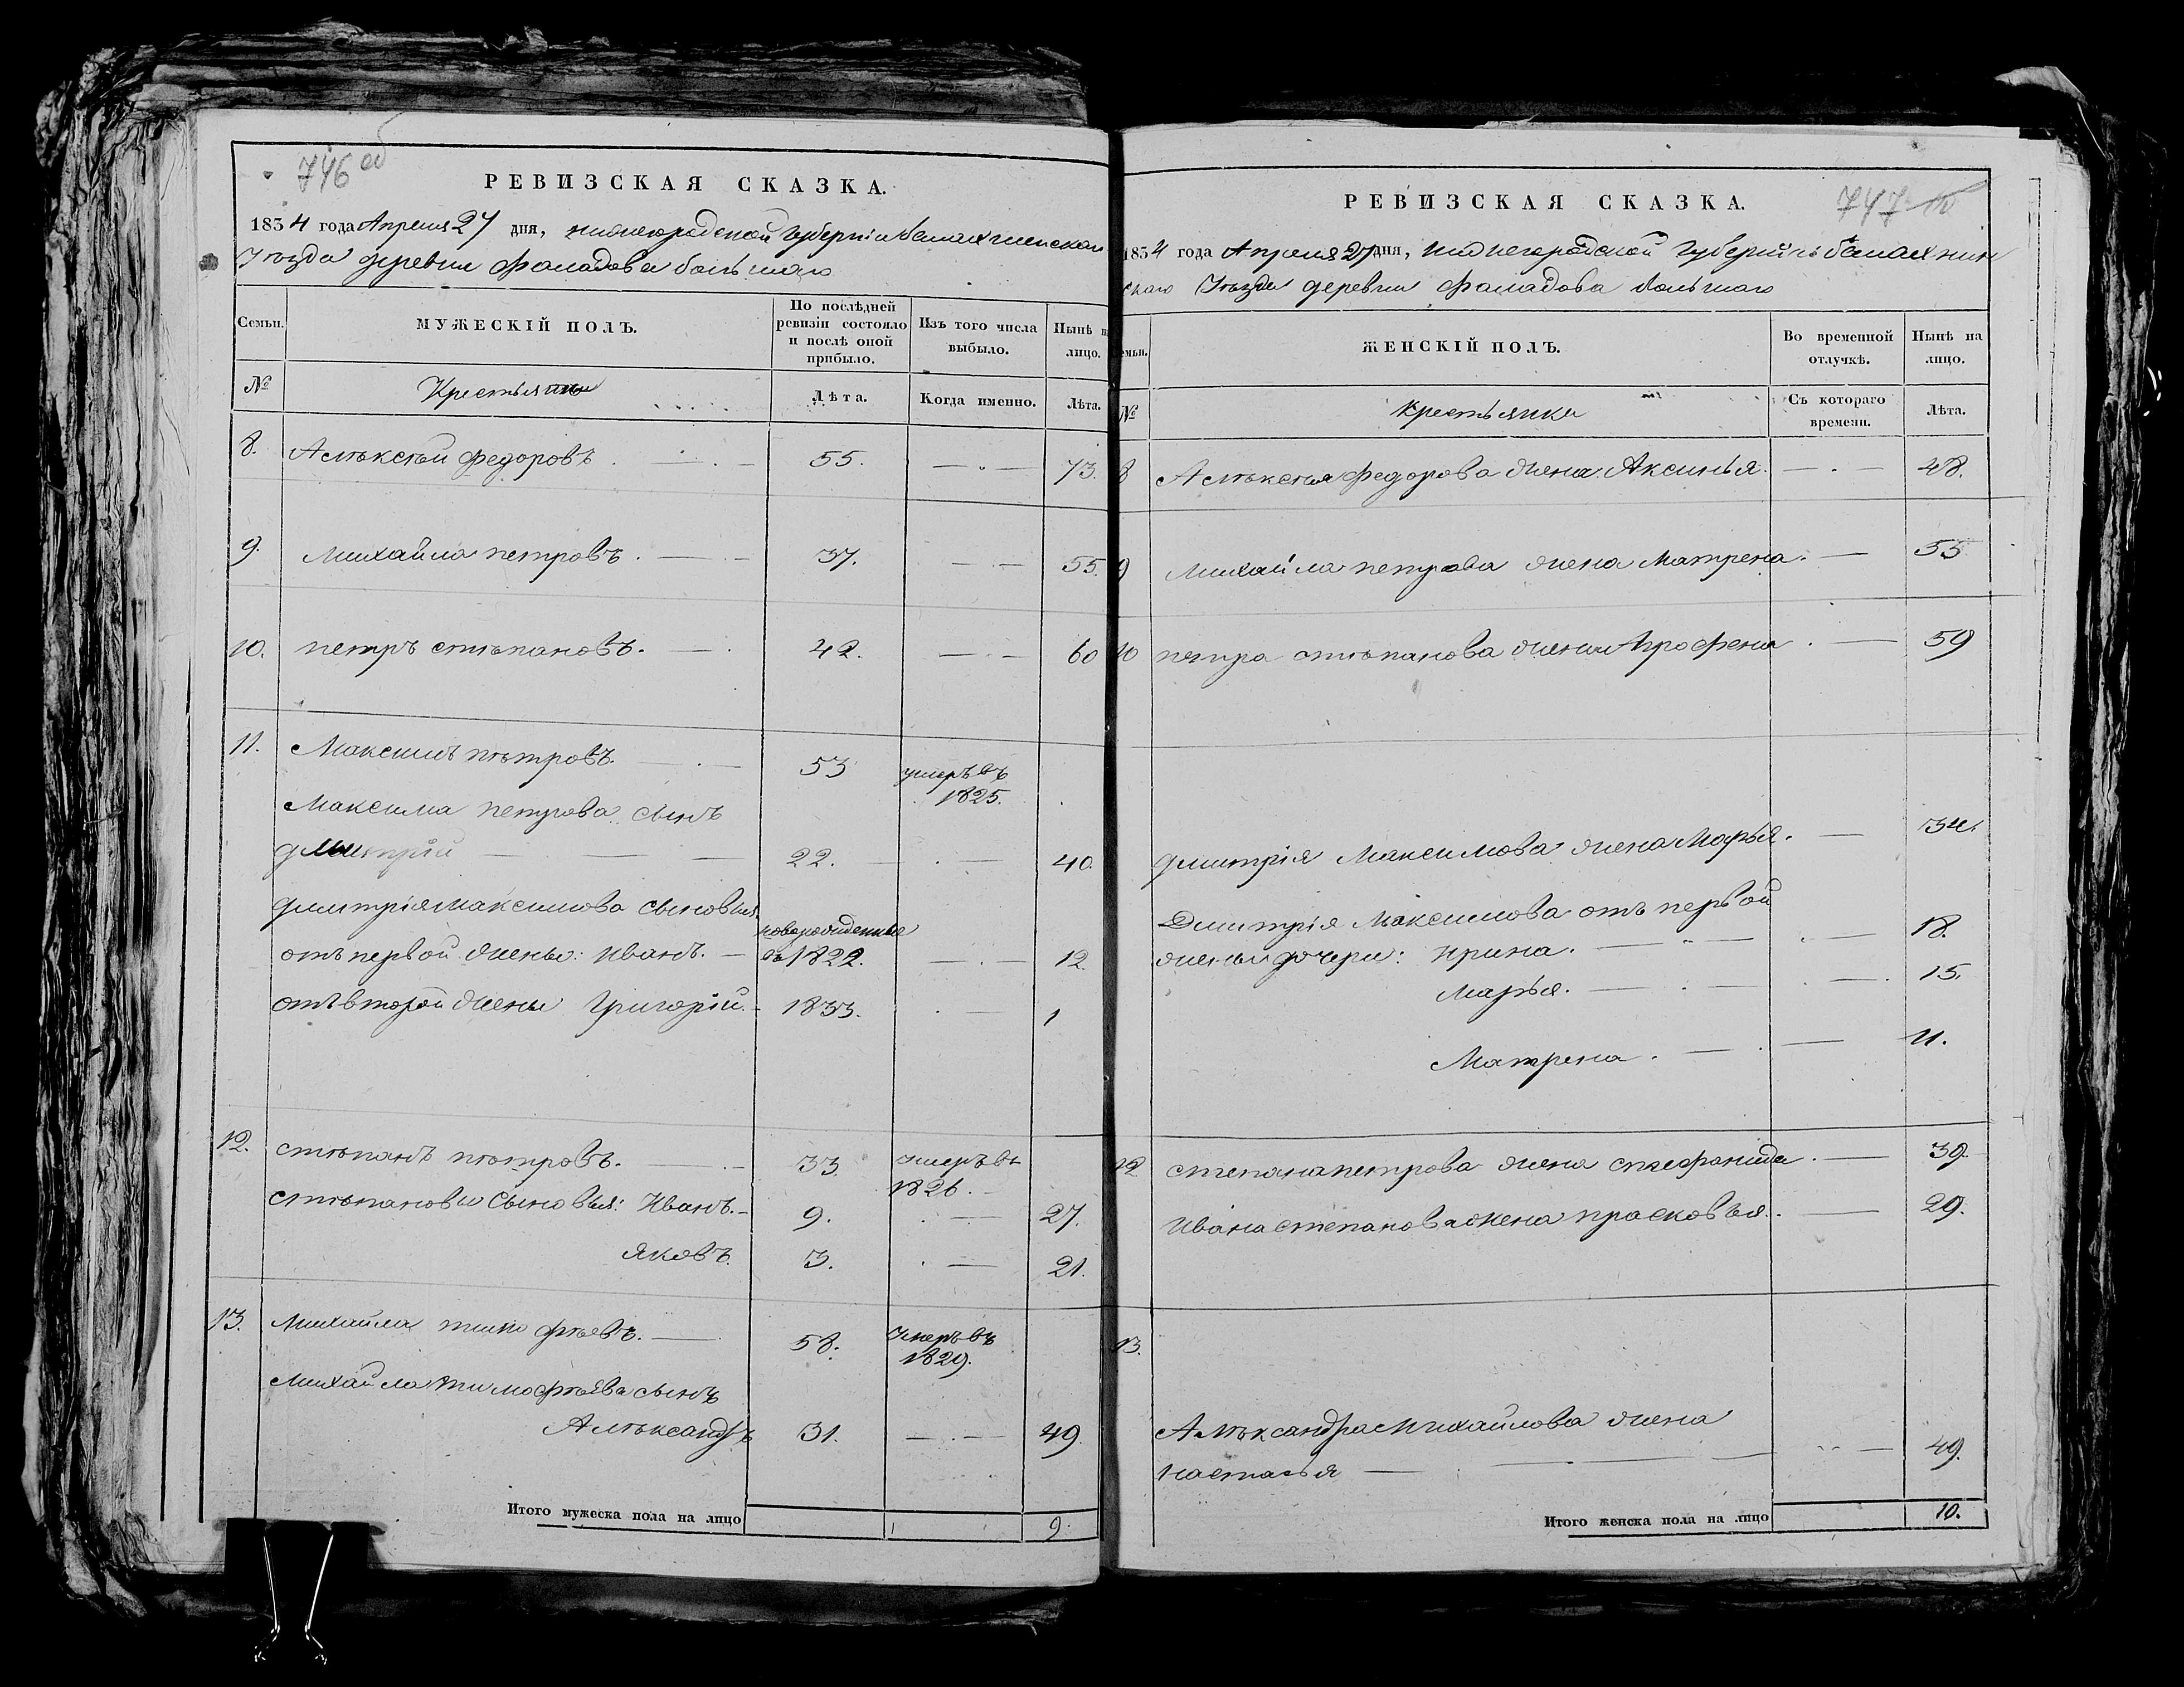 746 об
РЕВИЗСКАЯ СКАЗКА.
1834 года Апреля 27 дня, нижегородской губерніи балахнинскаго
Уѣзда деревни Фаладова большаго
Семьи. МУЖЕСКІЙ ПОЛЪ. По послѣдней ревизіи состояло и послѣ оной прибыло. Изъ того числа выбыло. Нынѣ на лицо.
№ Крестьяне Лѣта. Когда именно. Лѣта.
8. Алѣксѣй федоровъ 55. 73.
9. михайла петровъ. 37. 55.
10. петръ стѣпановъ. 42. 60
11. Максимъ пѣтровъ. 53 умеръ въ 1825.
Максима петрова сынъ
дмитрій 22. 40.
дмитрія максимова сыновья
отъ первой жены: иванъ. новорожденные въ 1822. 12.
отъ второй жены Григорій. 1833. 1
12. стѣпанъ пѣтровъ. 33. умеръ въ 1826.
стѣпановы сыновья: Иванъ. 9. 27.
яковъ. 3. 21.
13. михайла тимофѣевъ. 58. Умеръ въ 1829.
михайла тимофѣева сынъ
Алѣксандръ 31. 49.
Итого мужеска пола на лицо 9.
747
РЕВИЗСКАЯ СКАЗКА.
1834 года Апреля 27 дня, нижнегородской губерніи балахнин
скаго Уѣзда деревни Фаладова большаго
Семьи. ЖЕНСКІЙ ПОЛЪ. Во временной отлучкѣ. Нынѣ на лицо.
№ Крестьянки Съ котораго времени. Лѣта.
8 Алѣксѣя федорова жена Аксинья. 48.
9 михайла петрова жена матрена. 55
10 петра стѣпанова жена Апрофена 59
дмитрія максимова жена марья. 34.
Дмитрія максимова отъ первой
жены дочери: ирина. 18.
марья. 15.
матрена. 11.
12 степана петрова жена стефанида. 39.
ивана степанова жена прасковья. 29.
13.
Алѣксандра михайлова жена
настасья 49.
Итого женска пола на лицо 10.